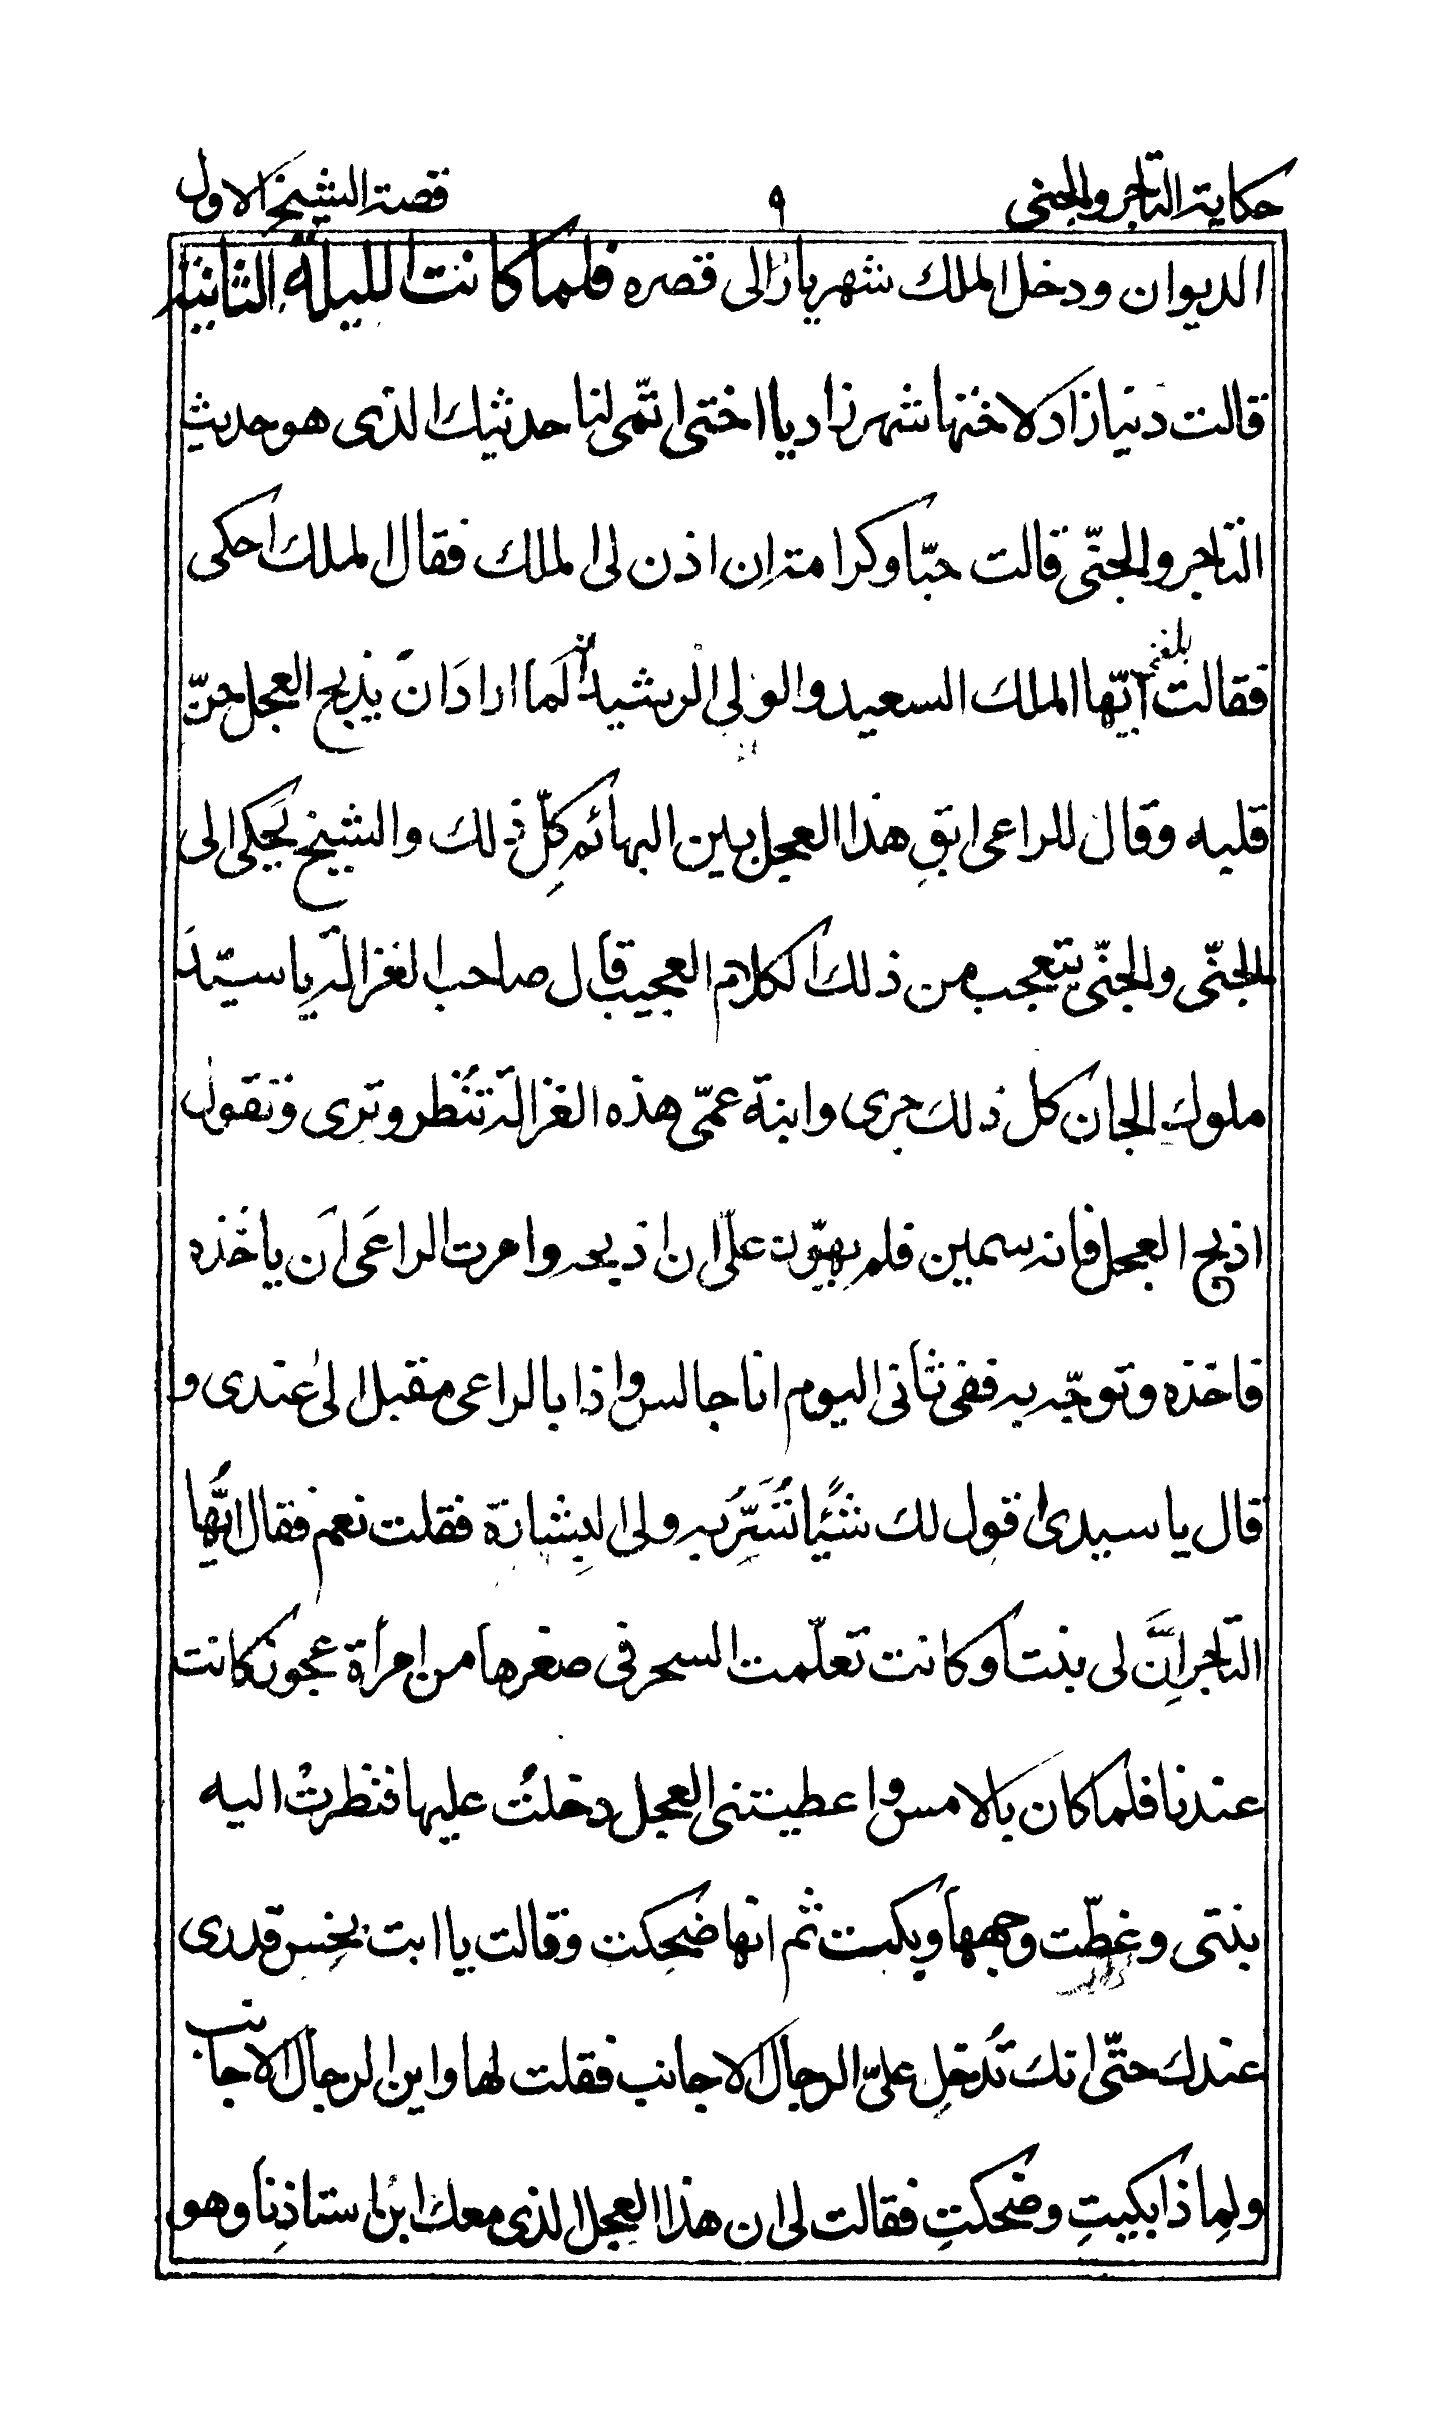 حكاية التاجر والجنى ٩ قصة الشيخ الاول
الديوان ودخل الملك شهريار الى قصره فلما كانت الليلة الثانية
قالت دنيازاد لاختها شهرزاد يا اختى اتمّى لنا حديثك الذى هو حديث
التاجر والجنّى قالت حبّا وكرامة ان اذن لى الملك فقال الملك احكى
فقالت بلغنى ايّها الملك السعيد والولى الرشيد انه لما اراد ان يذبح العجل حنّ
قلبه وقال للراعى ابقِ هذا العجل بين البهائم كلّ ذلك والشيخ يحكى الى
الجنّى والجنّى يتعجب من ذلك الكلام العجيب قال صاحب الغزالة يا سيّد
ملوك الجان كل ذلك جرى وابنة عمّى هذه الغزالة تنظر وترى وتقول
اذبح العجل فانه سمين فلم يهوّن علىّ ان اذبحه وامرت الراعى ان ياخذه
فاخذه وتوجّه به ففى ثانى اليوم انا جالس واذا بالراعى مقبل الىٰ عندى و
قال يا سيدى اقول لك شئًيا تُسَرُّ به ولى البِشارة فقلت نعم فقال ايُّها
التاجر اِنَّ لى بنتا وكانت تعلّمت السحر فى صغرها من امرأة عجوز كانت
عندنا فلما كان بالامس واعطيتنى العجل دخلتُ عليها فنظرتْ اليه
بنتى وغطّت وجهها وبكت ثم انها ضحكت وقالت يا ابت بخِس قدرى
عندك حتّى انك تُدخِل علىّ الرجال الاجانب فقلت لها واين الرجال الاجانب
ولِماذا بكيتِ وضحكتِ فقالت لى ان هذا العِجل الذى معك ابنُ استاذِنا وهو